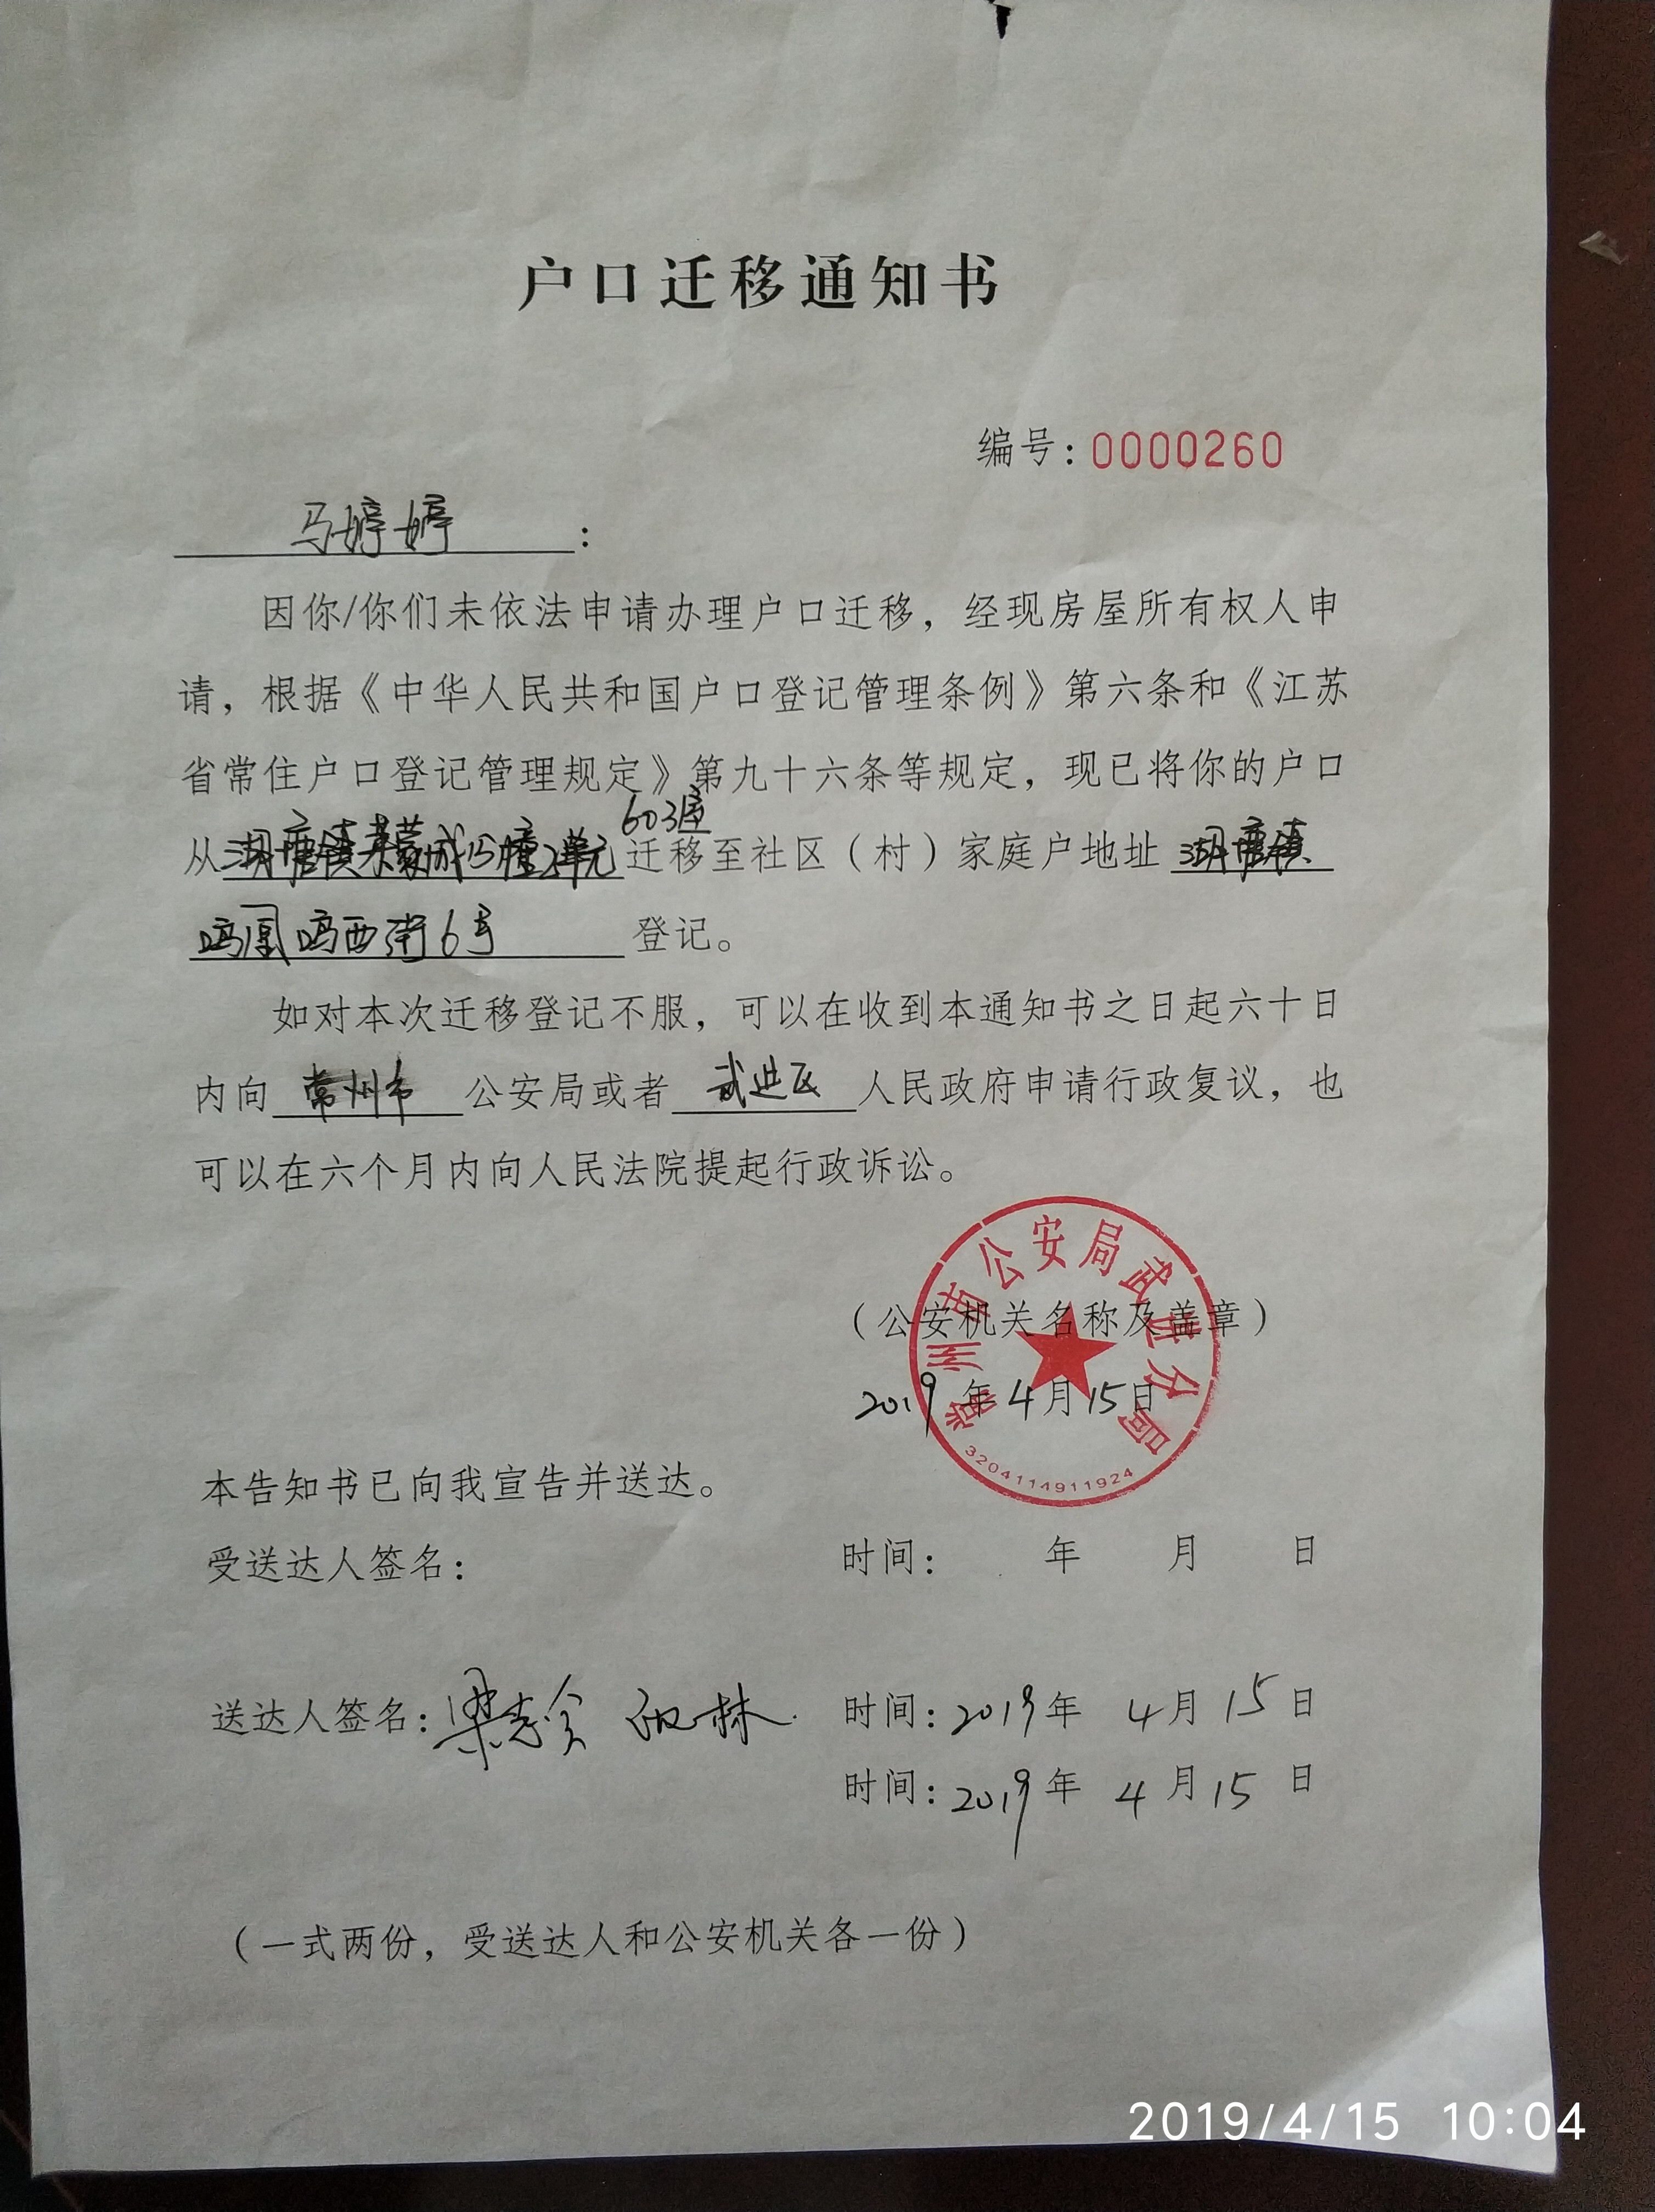 户口迁移通知书
编号：0000260
马婷婷：
因你/你们未依法申请办理户口迁移，经现房屋所有权人申
请，根据《中华人民共和国户口登记管理条例》第六条和《江苏
省常住户口登记管理规定》第九十六条等规定，现已将你的户口
603室
从湖塘镇莱蒙城13幢2单元迁移至社区（村）家庭户地址湖塘镇
鸣凰鸣西街6号登记。
如对本次迁移登记不服，可以在收到本通知书之日起六十日
内向常州市公安局或者武进区人民政府申请行政复议，也
可以在六个月内向人民法院提起行政诉讼。
常州市公安局武进分局
（公安机关名称及盖章）
2019年4月15日
3204114911924
本告知书已向我宣告并送达。
受送达人签名： 时间： 年 月 日
送达人签名： 时间：2019年 4月15日
时间：2019年 4月15日
（一式两份，受送达人和公安机关各一份）
2019/4/15 10:04